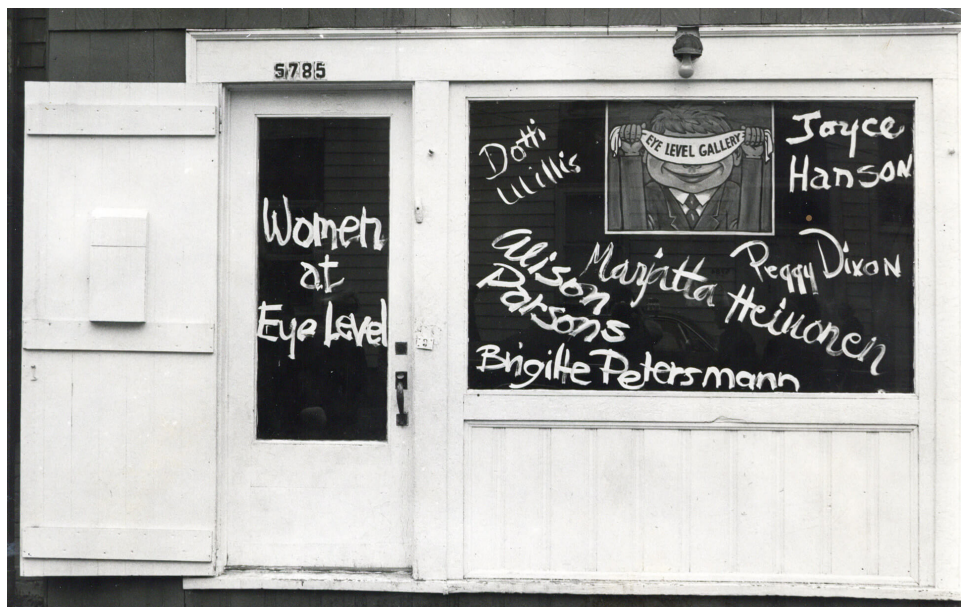 5785
Women
at
Eye Level
EYE LEVEL GALLERY
Dotti
Willis
Joyce
Hanson
Alison
Parsons
Marjatta
Heinonen
Peggy Dixon
Brigitte Petersmann